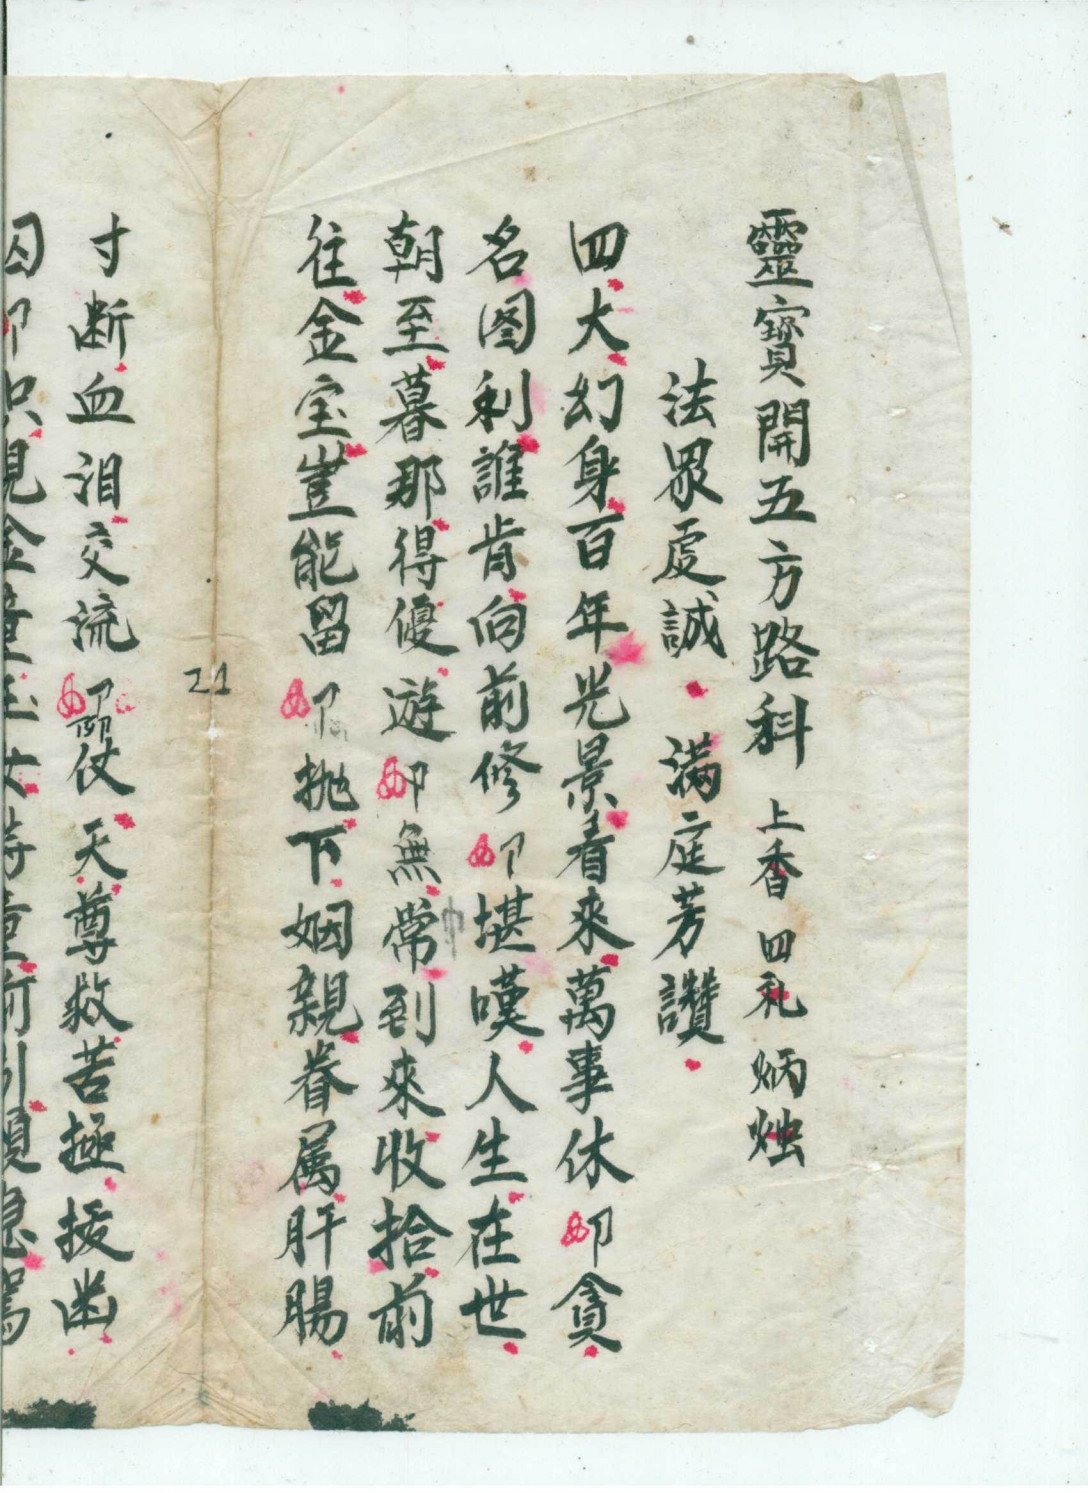 靈寶開五方路科 上香 四礼 炳烛
法界虔誠 满庭芳讚
四大幻身百年光景看來萬事休 卩貪
名图利誰肯向前修 卩堪嘆人生在世
朝至暮那得優遊 卩無常到來收拾前
往金宝豈能留 卩抛下姻親眷属肝腸
21
寸断血泪交流 卩仗天尊救苦極援幽